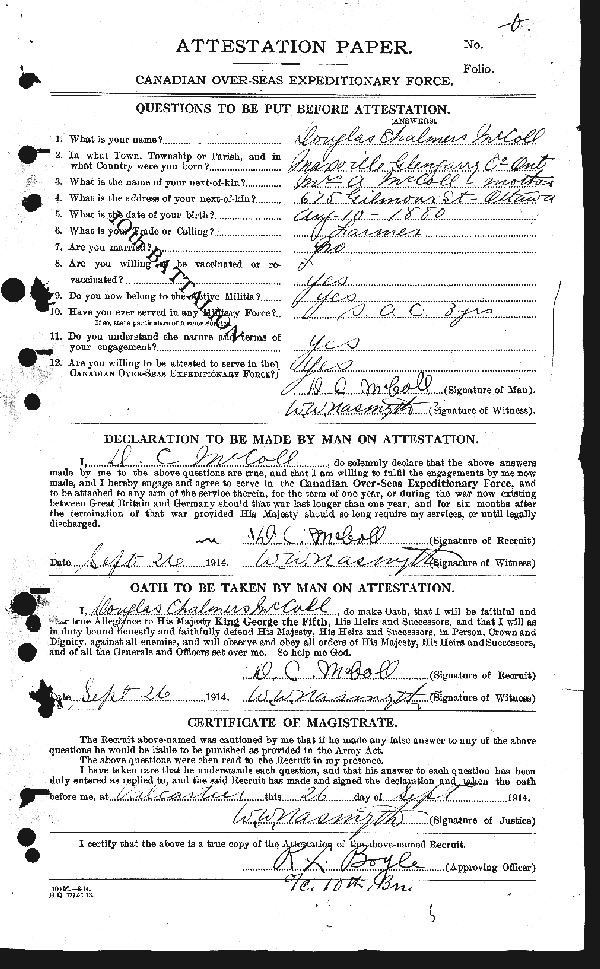 ATTESTATION PAPER.
No.
Folio.
CANADIAN OVER-SEAS EXPEDITIONARY FORCE.
QUESTIONS TO BE PUT BEFORE ATTESTATION.
(ANSWERS).
1. What is your name? Douglas Chalmers McColl
2. In what Town, Township or Parish, and in
what Country were you born? Maxville Glengarry Co Ont
3. What is the name of your next-of-kin? McColl (mother
4. What is the address of your next-of-kin? 615 Gilmour St - Ottawa
5. What is the date of your birth? Aug 10 - 1880
6. What is your Trade or Calling? Farmer
7. Are you married? no
8. Are you willing to be vaccinated or re-
vaccinated? yes
9. Do you now belong to the Active Militia? yes
10. Have you ever served in any Military Force? 3 yrs
If so, state particulars of former Service.
11. Do you understand the nature and terms of
your engagement? yes
12. Are you willing to be attested to serve in the
CANADIAN OVER-SEAS EXPEDITIONARY FORCE? Yes
10TH BATTALION
D C McColl (Signature of Man).
W.W. Nasmyth (Signature of Witness).
DECLARATION TO BE MADE BY MAN ON ATTESTATION.
I, D C McColl, do solemnly declare that the above answers
made by me to the above questions are true, and that I am willing to fulfil the engagements by me now
made, and I hereby engage and agree to serve in the Canadian Over-Seas Expeditionary Force, and
to be attached to any arm of the service therein, for the term of one year, or during the war now existing
between Great Britain and Germany should that war last longer than one year, and for six months after
the termination of that war provided His Majesty should so long require my services, or until legally
discharged.
D. C. McColl (Signature of Recruit)
Date Sept 26 1914. W.W. Nasmyth (Signature of Witness)
OATH TO BE TAKEN BY MAN ON ATTESTATION.
I, Douglas Chalmers McColl, do make Oath, that I will be faithful and
bear true Allegiance to His Majesty King George the Fifth, His Heirs and Successors, and that I will as
in duty bound honestly and faithfully defend His Majesty, His Heirs and Successors, in Person, Crown and
Dignity, against all enemies, and will observe and obey all orders of His Majesty, His Heirs and Successors,
and of all the Generals and Officers set over me. So help me God.
D. C. McColl (Signature of Recruit)
Date Sept 26 1914. W.W. Nasmyth (Signature of Witness)
CERTIFICATE OF MAGISTRATE.
The Recruit above-named was cautioned by me that if he made any false answer to any of the above
questions he would be liable to be punished as provided in the Army Act.
The above questions were then read to the Recruit in my presence.
I have taken care that he understands each question, and that his answer to each question has been
duly entered as replied to, and the said Recruit has made and signed the declaration and taken the oath
before me, at Valcartier this 26 day of Sept 1914.
W.W. Nasmyth (Signature of Justice)
I certify that the above is a true copy of the Attestation of the above-named Recruit.
R L Boyle (Approving Officer)
10th Bn.